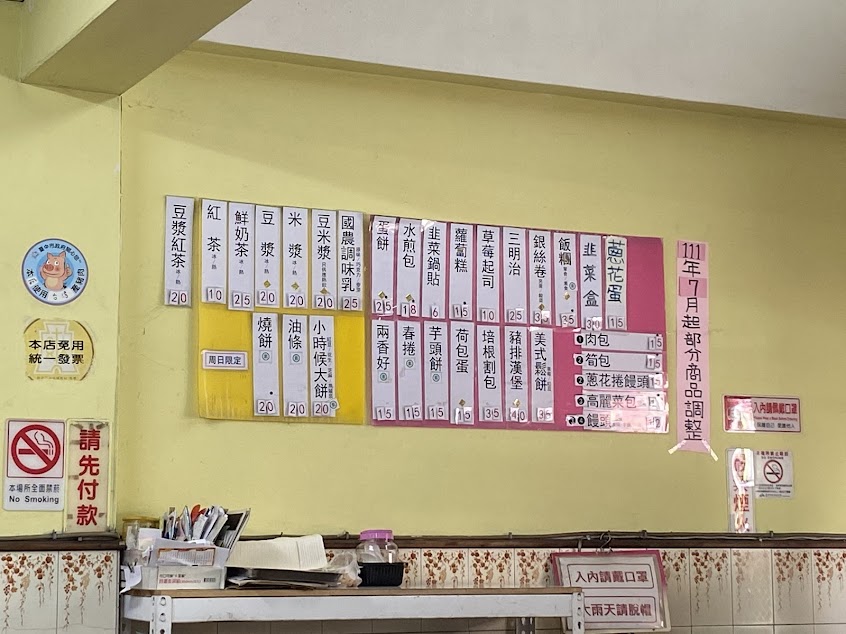 本店免用
統一發票
本場所全面禁菸
No Smoking
請先付款
豆漿紅茶 20
紅茶 冰.熱 10
鮮奶茶 冰.熱 25
豆漿 冰.熱 20
米漿 冰.熱 20
豆米漿 20
國農調味乳 25
周日限定
燒餅 20
油條 20
小時候大餅 20
蛋餅 25
水煎包 18
韭菜鍋貼 6
蘿蔔糕 15
草莓起司 10
三明治 25
銀絲卷
飯糰 35
韭菜盒 30
蔥花蛋 15
兩香好 15
春捲 15
芋頭餅 15
荷包蛋 15
培根割包 35
豬排漢堡 40
美式鬆餅
1 肉包 15
2 筍包 15
2 蔥花捲饅頭 15
3 高麗菜包
4 饅頭
111年7月起部分商品調整
入內請戴口罩
入內請戴口罩
大雨天請脫帽